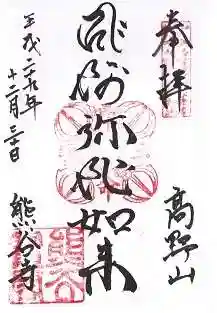 奉拝
高野山
阿弥陀如来
平成二十九年
十二月
熊谷寺